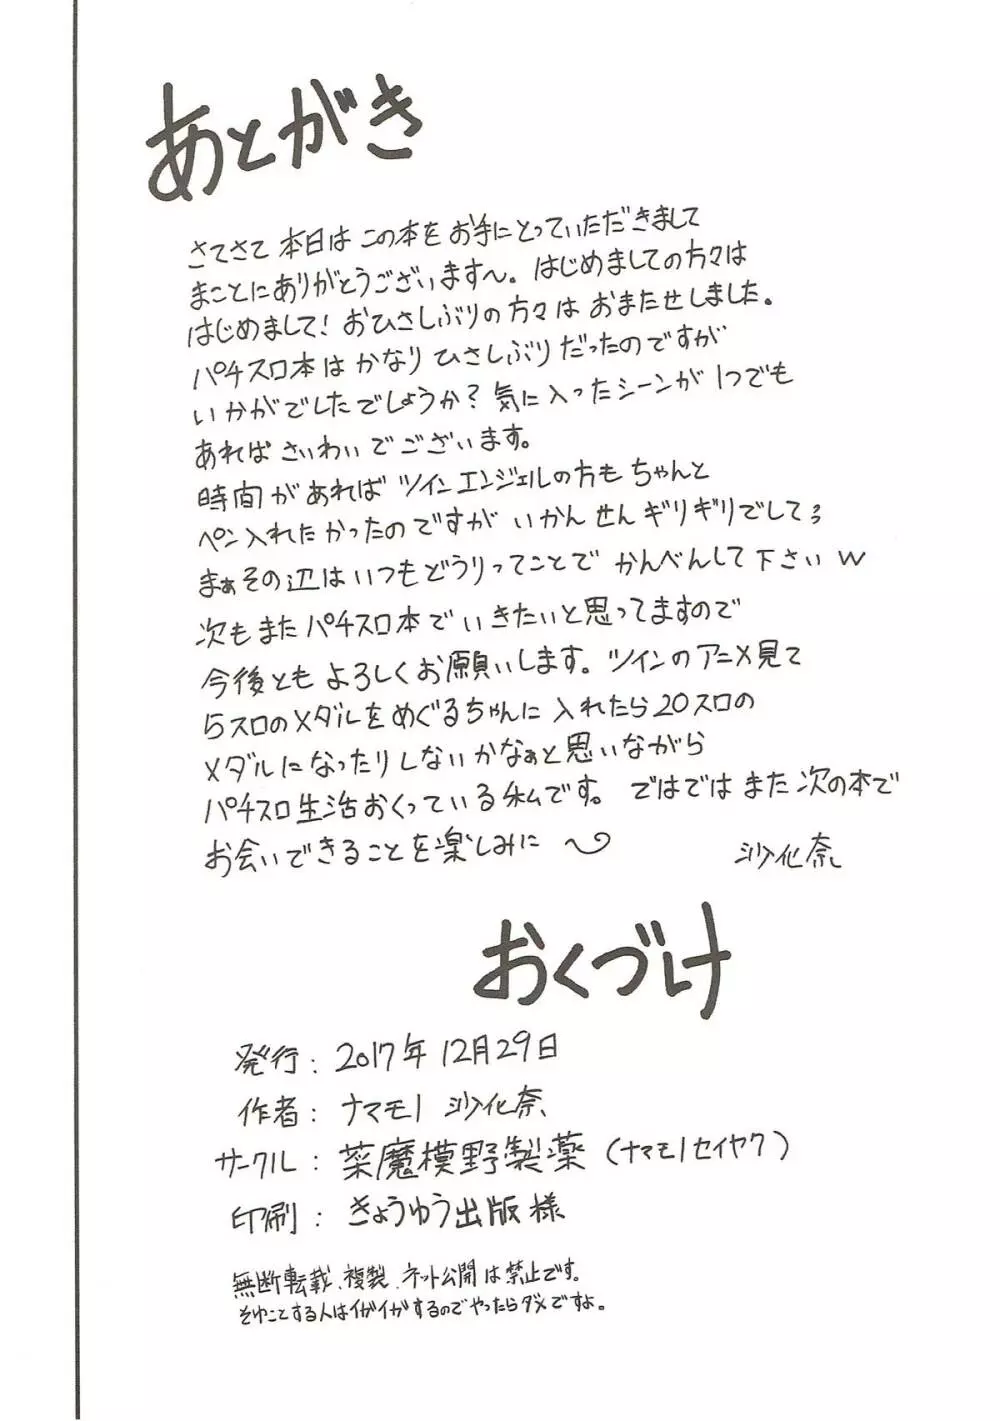 あとがき
さてさて 本日は この本を お手にとっていただきまして
まことにありがとうございます〜。はじめましての方々は
はじめまして! おひさしぶりの方々は おまたせしました。
パチスロ本は かなり ひさしぶりだったのですが
いかがでしたでしょうか? 気に入ったシーンが 1つでも
あれば さいわいでございます。
時間があれば ツインエンジェルの方も ちゃんと
ペン入れたかったのですが いかんせんギリギリでしてろ
まぁその辺はいつもどうりってことで かんべんして下さいw
次もまたパチスロ本で いきたいと思ってますので
今後とも よろしくお願いします。ツインのアニメ見て
5スロのメダルをめぐるちゃんに 入れたら20スロの
メダルになったりしないかなぁと思いながら
パチスロ生活おくっている私です。ではでは また 次の本で
お会いできることを楽しみに 〜
沙化奈
おくづけ
発行: 2017年 12月29日
作者: ナマモノ 沙化奈
サークル: 菜魔模野製薬 (ナマモノセイヤク)
印刷: きょうゆう出版 様
無断転載、複製、ネット公開は禁止です。
そゆことする人はイガイガするのでやったらダメですよ。